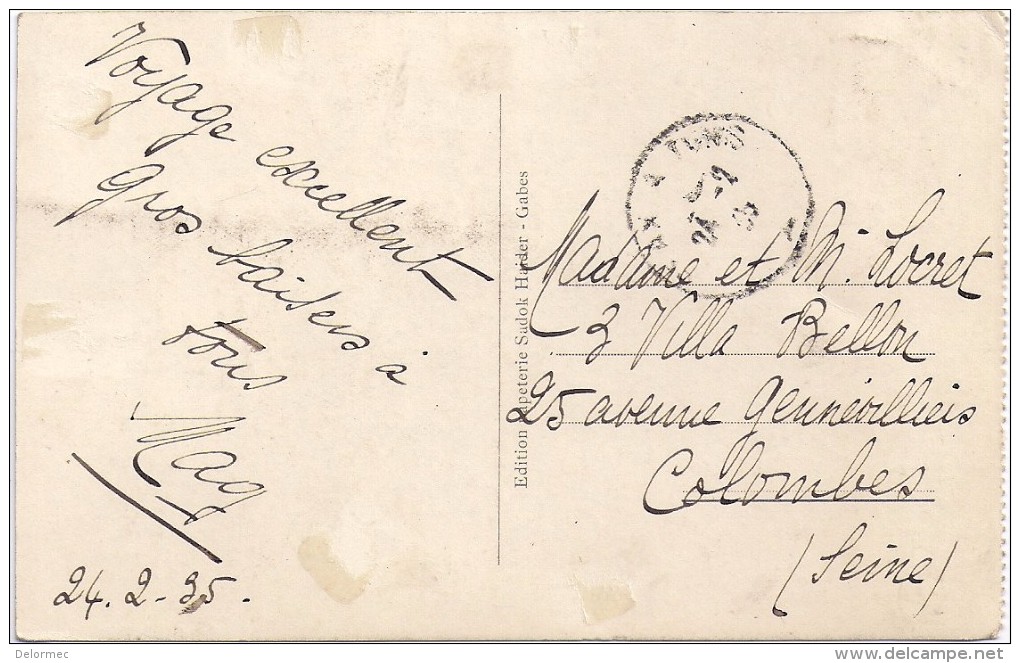 Voyage excellent
Gros baisers à
tous
Mag
24.2-35.
Edition Papeterie Sadok Harder - Gabes
TUNIS
Madame et M. Locret
3 Villa Bellon
25 avenue Gennevilliers
Colombes
(Seine)
Delormec
www.delcampe.net